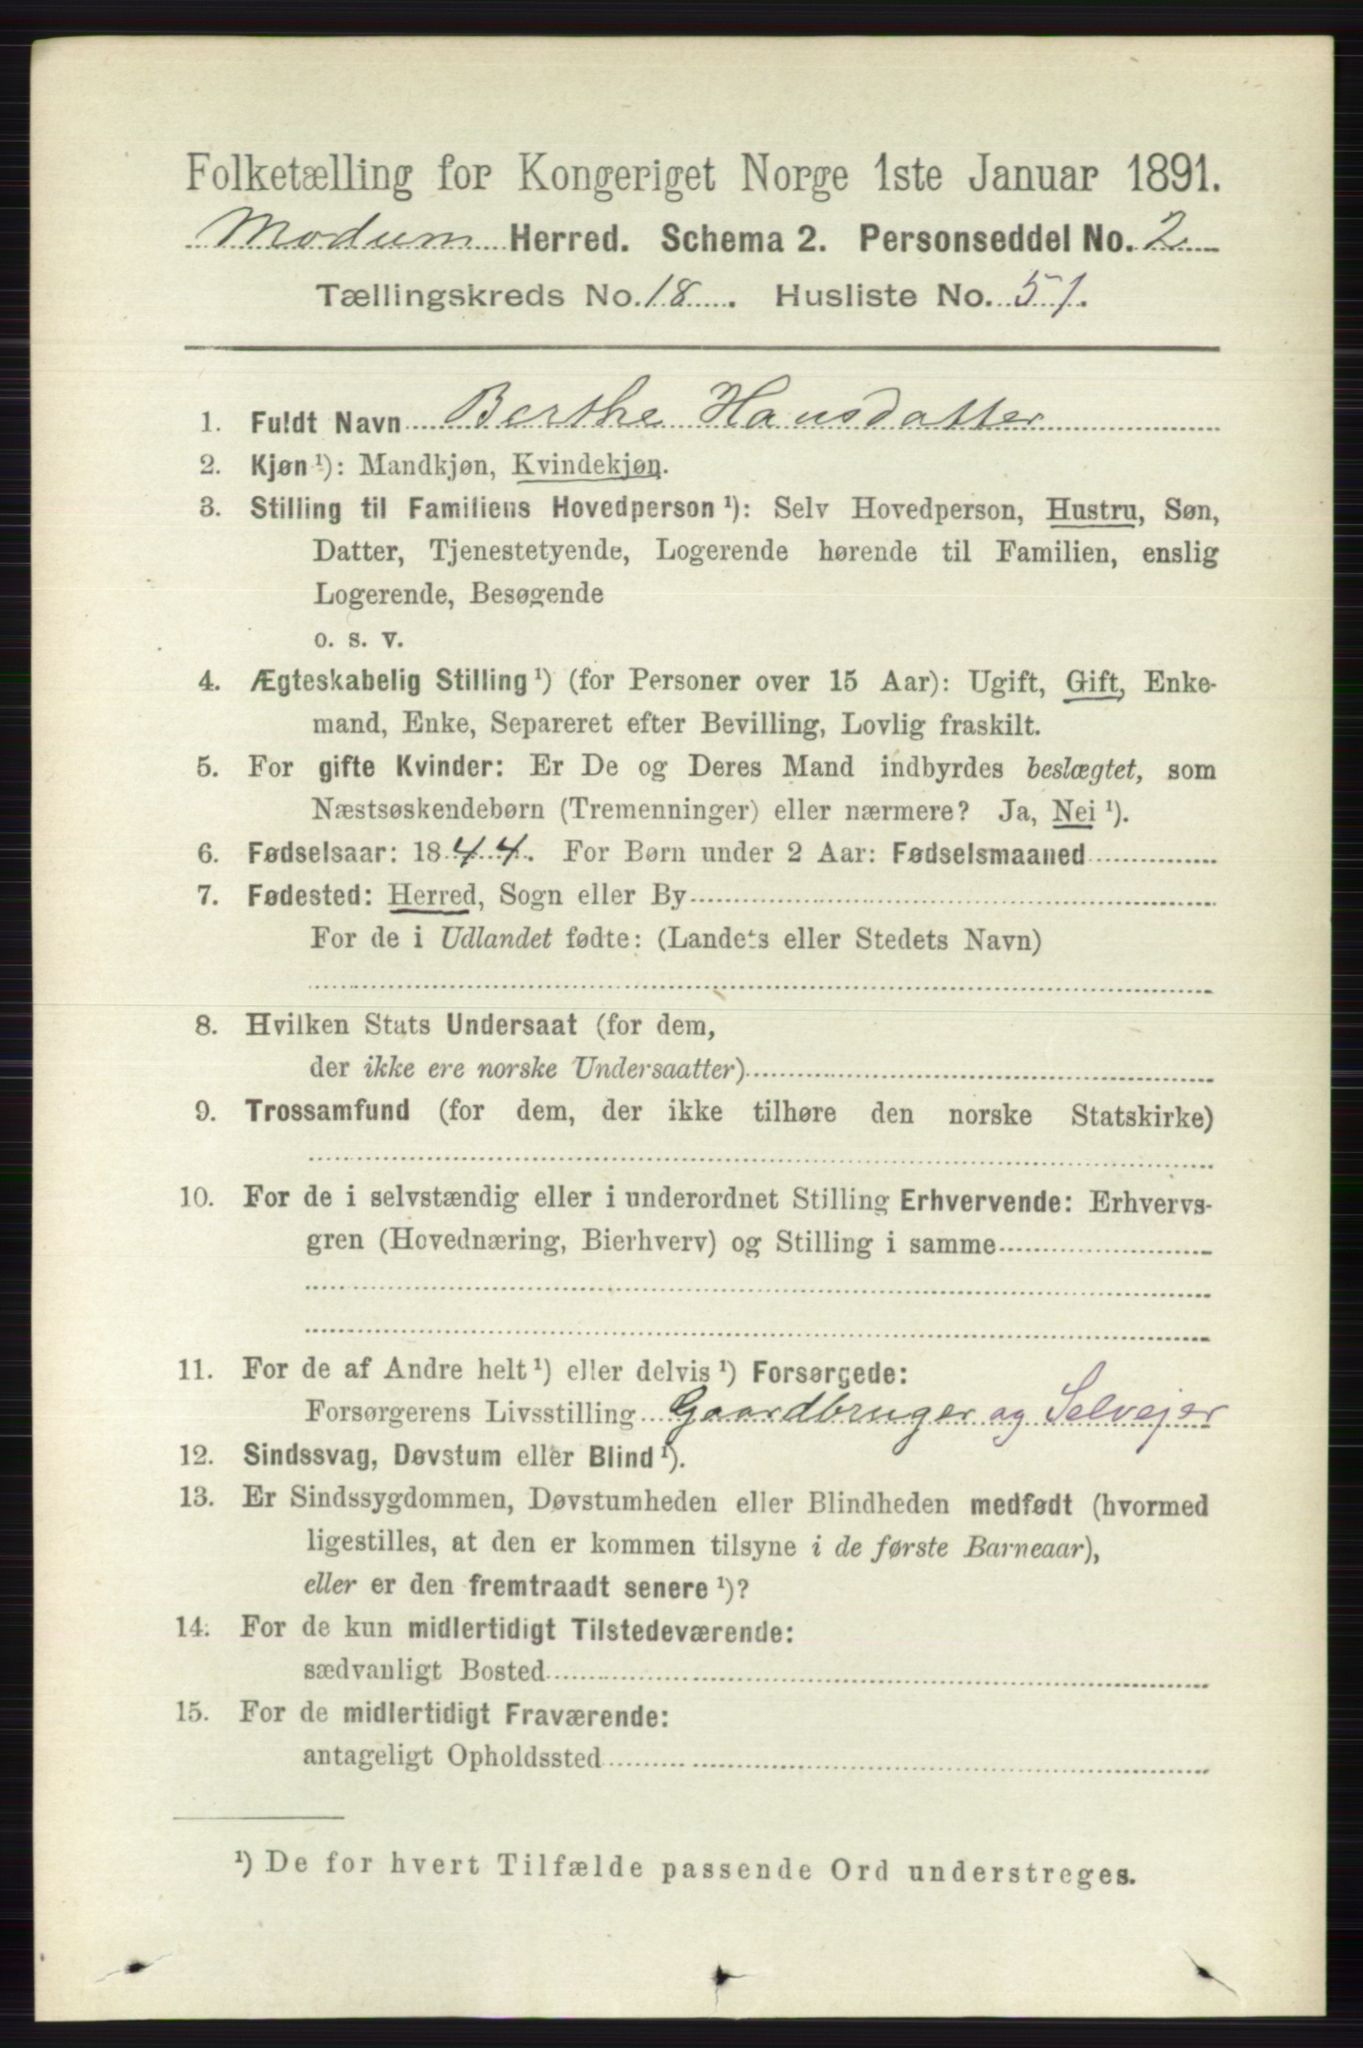 Folketælling for Kongeriget Norge 1ste Januar 1891.
Modum Herred. Schema 2. Personseddel No. 2
Tællingskreds No. 18. Husliste No. 51.
1. Fuldt Navn Berthe Hansdatter
2. Kjøn ¹): Mandkjøn, Kvindekjøn.
3. Stilling til Familiens Hovedperson ¹): Selv Hovedperson, Hustru, Søn,
Datter, Tjenestetyende, Logerende hørende til Familien, enslig
Logerende, Besøgende
o. s. v.
4. Ægteskabelig Stilling ¹) (for Personer over 15 Aar): Ugift, Gift, Enke-
mand, Enke, Separeret efter Bevilling, Lovlig fraskilt.
5. For gifte Kvinder: Er De og Deres Mand indbyrdes beslægtet, som
Næstsøskendebørn (Tremenninger) eller nærmere? Ja, Nei ¹).
6. Fødselsaar: 1844. For Børn under 2 Aar: Fødselsmaaned
7. Fødested: Herred, Sogn eller By
For de i Udlandet fødte: (Landets eller Stedets Navn)
8. Hvilken Stats Undersaat (for dem,
der ikke ere norske Undersaatter)
9. Trossamfund (for dem, der ikke tilhøre den norske Statskirke)
10. For de i selvstændig eller i underordnet Stilling Erhvervende: Erhvervs-
gren (Hovednæring, Bierhverv) og Stilling i samme
11. For de af Andre helt ¹) eller delvis ¹) Forsørgede:
Forsørgerens Livsstilling Gaardbruger og Selvejer
12. Sindssvag, Døvstum eller Blind ¹).
13. Er Sindssygdommen, Døvstumheden eller Blindheden medfødt (hvormed
ligestilles, at den er kommen tilsyne i de første Barneaar),
eller er den fremtraadt senere ¹)?
14. For de kun midlertidigt Tilstedeværende:
sædvanligt Bosted
15. For de midlertidigt Fraværende:
antageligt Opholdssted
¹) De for hvert Tilfælde passende Ord understreges.